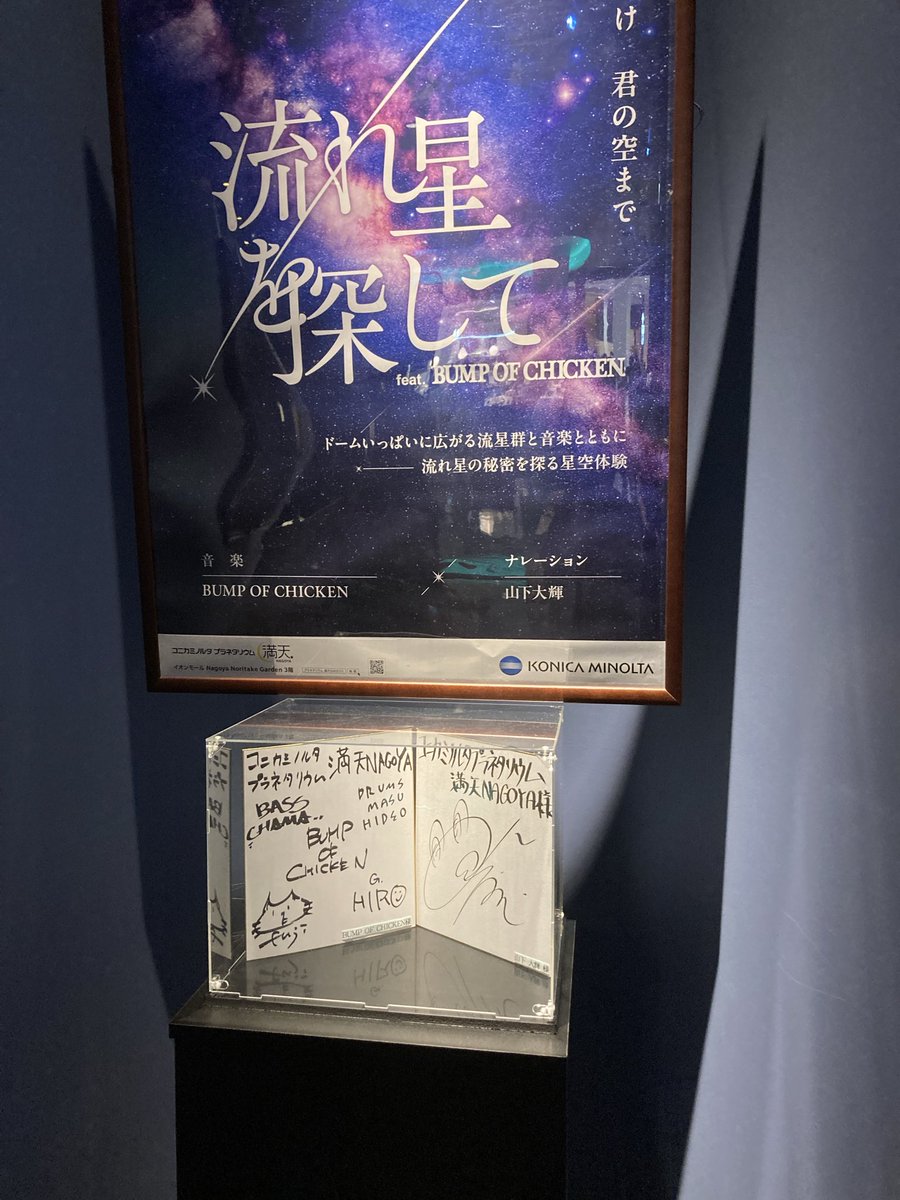 け 君の空まで
流れ星
を探して
feat. BUMP OF CHICKEN
ドームいっぱいに広がる流星群と音楽とともに
流れ星の秘密を探る星空体験
音楽
BUMP OF CHICKEN
ナレーション
山下大輝
コニカミノルタ プラネタリウム 満天 NAGOYA
イオンモール Nagoya Noritake Garden 3階
KONICA MINOLTA
コニカミノルタ
プラネタリウム 満天NAGOYA
BASS
"CHAMA"
DRUMS
MASU
HIDEO
BUMP
OF
CHICKEN
G.
HIRO
fuji
BUMP OF CHICKEN様
コニカミノルタプラネタリウム
満天NAGOYA様
山下 大輝 様